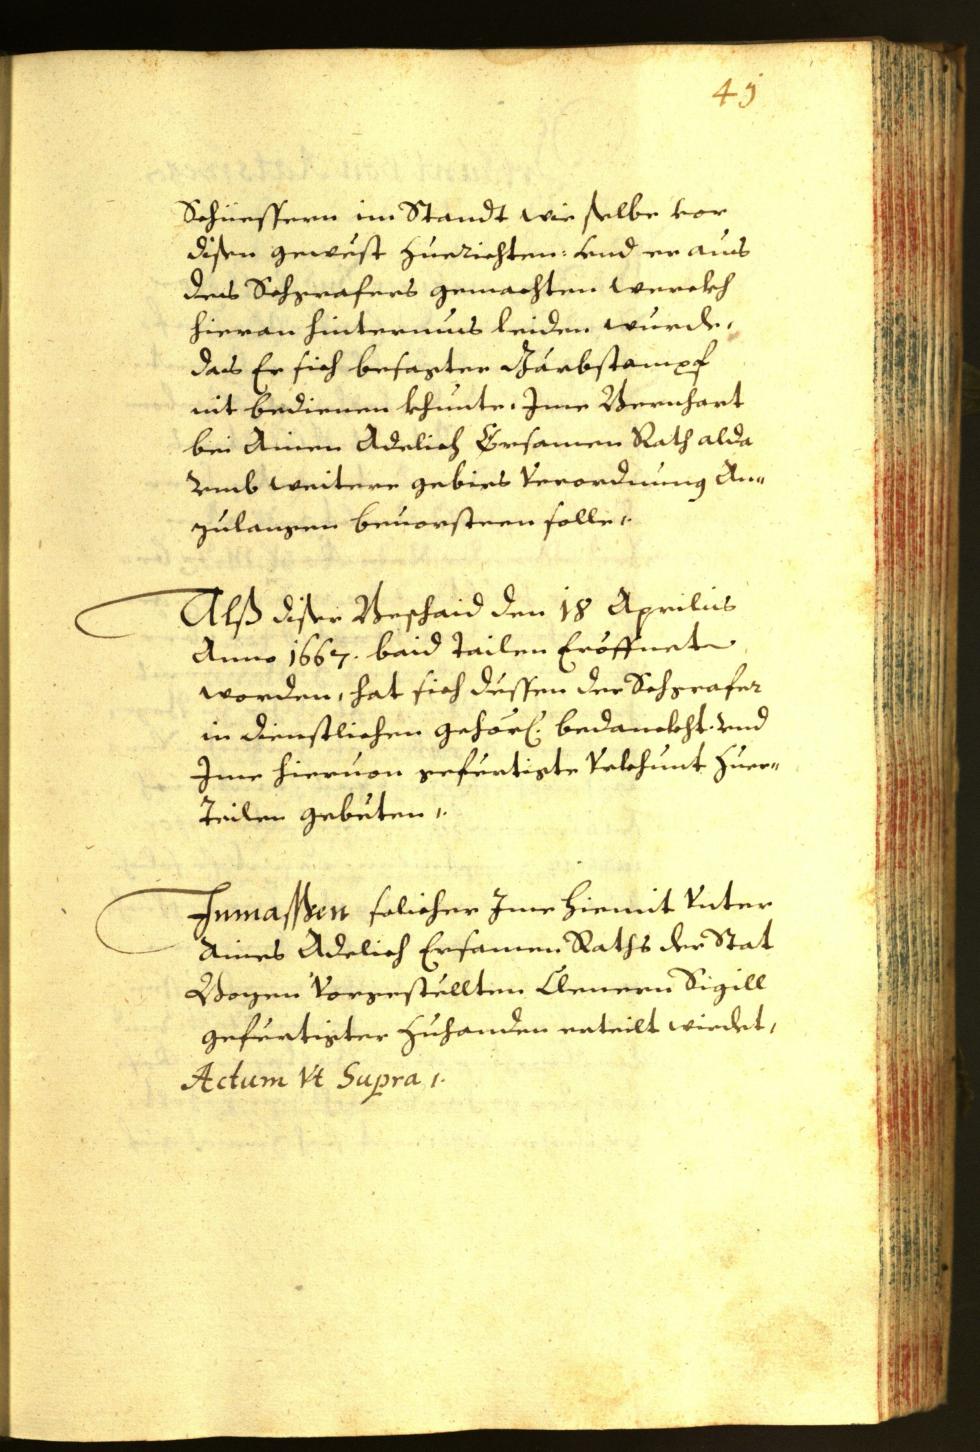 45
Schüessern im Standt wie selbe vor
disen gewest zuerichten: vnd er aus
des Schgrafers gemachten werckh
hieran hinternuus leiden wurde,
das Er sich besagter Gärbstampf
nit bedienen khunte, Ime Bernhart
bei Ainen Adelich Ersamen Rath alda
vmb weitere gebirs Verordnung An-
zulangen beuorsteen solle.
Alß diser Beschaid den 18 Aprilius
Anno 1667. baid tailen Eröffnet
worden, hat sich dessen der Schgrafer
in dienstlichen gehör. bedanckht. vnd
Ime hieruon gefertigte Vrkhunt zuer-
Teilen gebeten.
Inmassen solicher Ime hiemit Vnter
Aines Adelich Ersamen Raths der Stat
Bozen Vorgestellten Clenern Sigill
gefertigter zuhanden erteilt wierdet,
Actum Vt Supra.